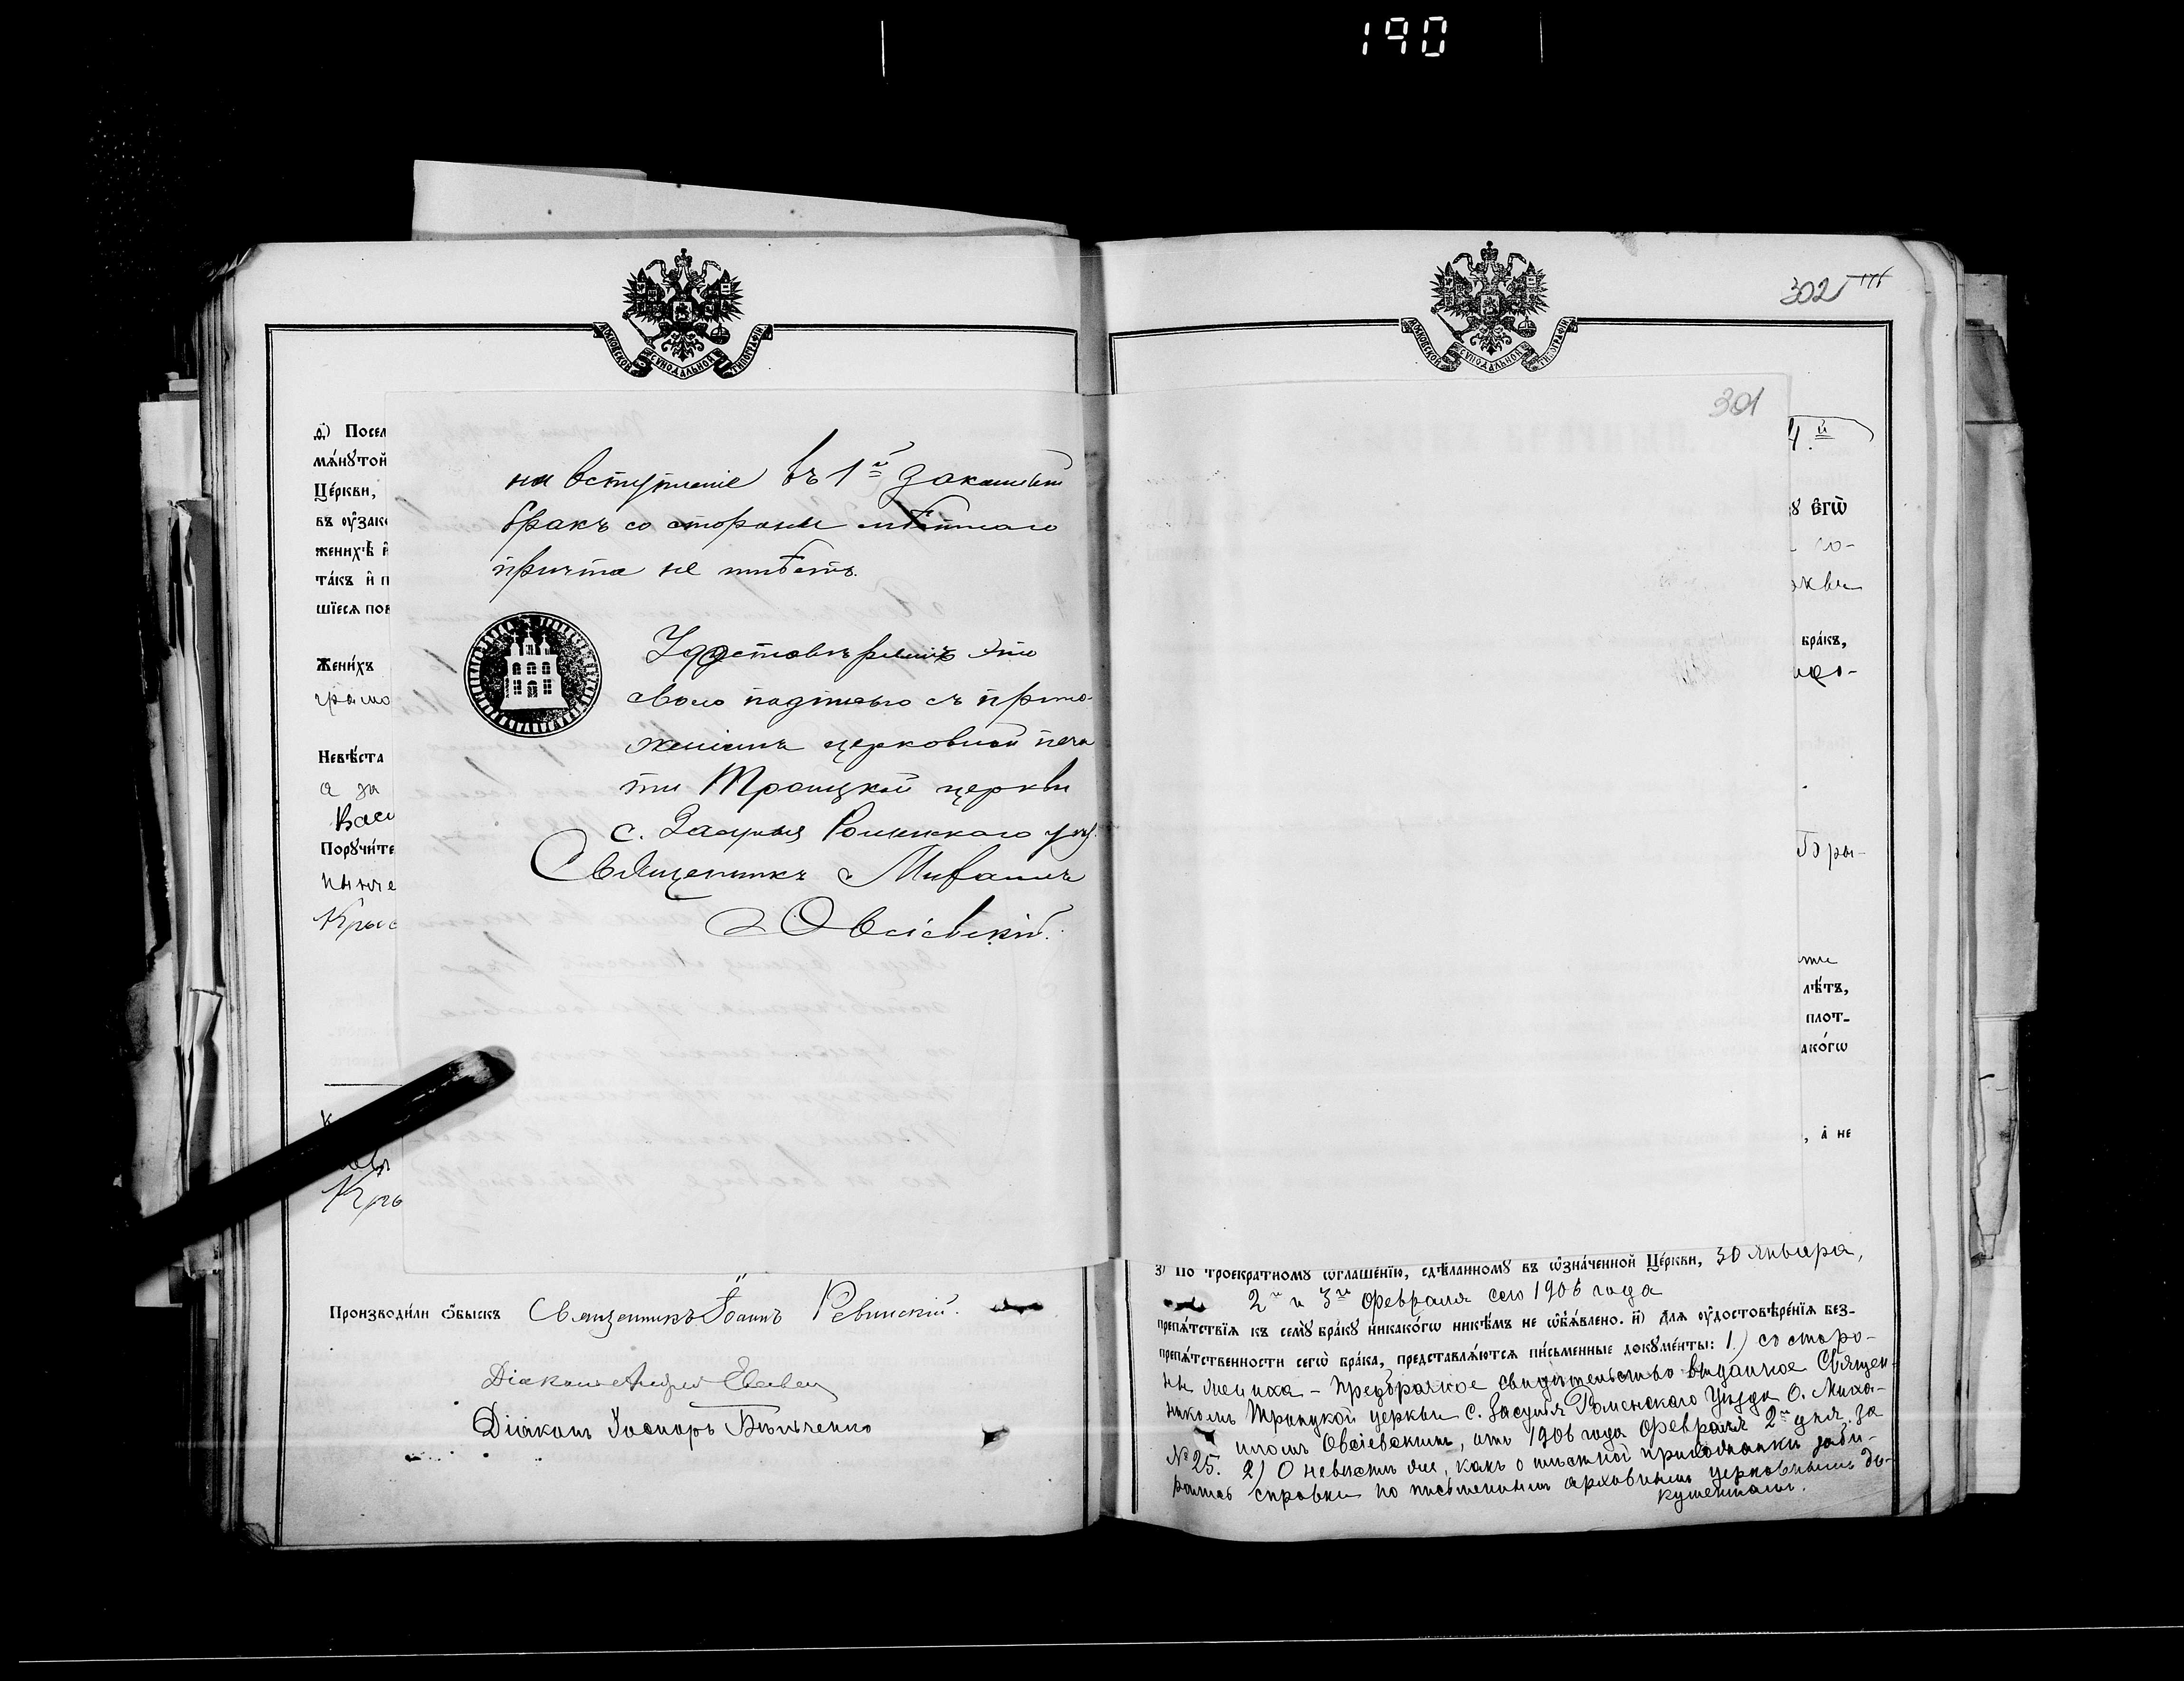 190
МОСКОВСКОЙ СѴНОДАЛЬНОЙ ТИПОГРАФІИ
д҃) Посел
мѧ́нутой
Це́ркви,
въ ᲂу҆зако
женихѣ̀ и҆
та́къ и҆ п
шїесѧ пов
Жени́хъ
грамо
Невѣ́ста
а за
Васи
Порꙋчи́те
Крыс
на вступленіе въ 1й законный
бракъ со стороны мѣстнаго
причта не имѣетъ.
Удостовѣряю это
свою подписью съ прило-
женіемъ церковной печа
ти Троицкой церкви
с. Засулья Роменскаго уѣз.
Священникъ Михаилъ
Овсіевскій.
Производи́ли ѻ҆́быскъ Священникъ Іоаннъ Ревинскій.
Діаконъ Андрей
Діаконъ Іосифъ Бѣльченко
МОСКОВСКОЙ СѴНОДАЛЬНОЙ ТИПОГРАФІИ
302 176
301
4й
є҆гѡ̀
со-
бра́къ,
лѣ́тъ,
плот-
ако́гѡ
, а҆ не
з҃) По троекра́тномꙋ ѡ҆глаше́нїю, сдѣ́ланномꙋ въ ѡ҆зна́ченной Це́ркви, 30 Января,
2го и 3го Февраля сего 1906 года
препѧ́тствїѧ къ семꙋ̀ бра́кꙋ никако́гѡ никѣ́мъ не ѡ҆б̾ѧ́влено. и҃) Для ᲂу҆достовѣре́нїѧ без-
препѧ́тственности сегѡ̀ бра́ка, представлѧ́ютсѧ пи́сьменные докꙋме́нты: 1) со сторо-
ны жениха – предбрачное свидѣтельство выданное Священ-
никомъ Троицкой церкви с. Засулья Роменскаго Уѣзда О. Миха-
иломъ Овсіевскимъ, отъ 1906 года Февраля 2го дня за
№ 25. 2) О невѣстѣ же, какъ о мѣстной прихожанки заби-
рались справки по письменнымъ архивнымъ церковнымъ до-
кументамъ.